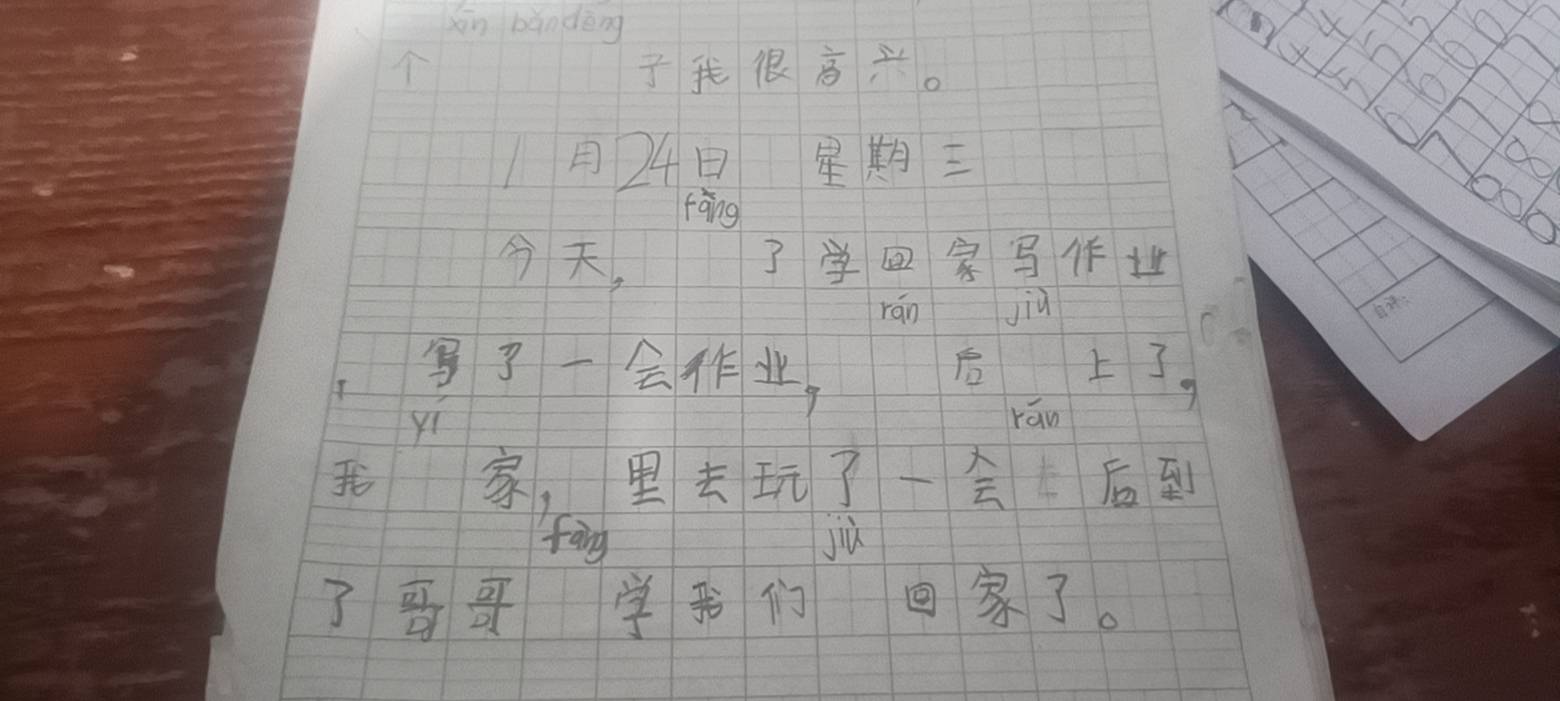 xīn bǎndèng
个 子我很高兴。
1月24日 星期三
fǎng
今天， 了学回家写作业
rán jiù
，写了一会作业， 后 上了，
yí rán
我 家，里去玩了一会 后到
fàng jiù
了哥哥 学我们 回家了。